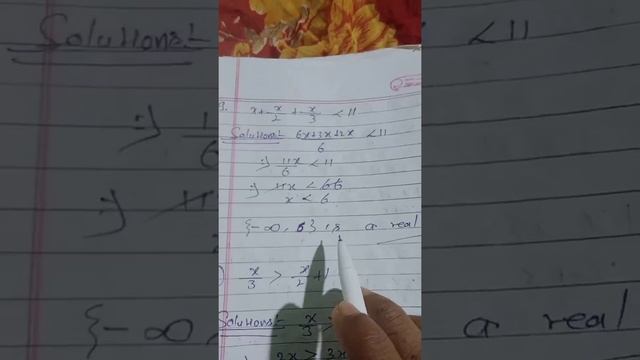 3. x+x/2 + x/3 < 11
Solutions:- 6x+3x+2x/6 < 11
⇒ 11x/6 < 11
⇒ 11x < 66
x < 6
{-∞, 6} is a real
x/3 > x/2 + 1
Solutions:- x/3 >
2x > 3x